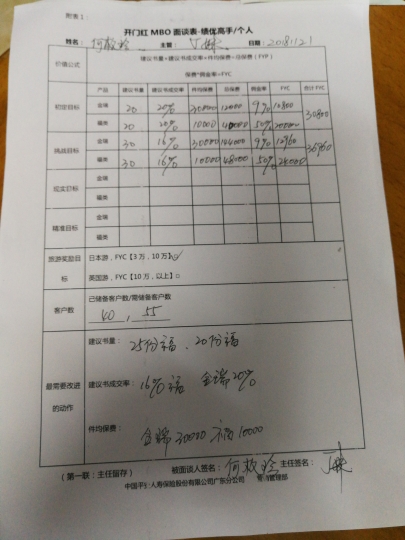 附表1
开门红 MBO 面谈表-绩优高手/个人
姓名: 主管: 日期: 20181121
价值公式 建议书量*建议书成交率*件均保费=总保费 (FYP)
保费*佣金率=FYC
产品 建议书量 建议书成交率 件均保费 总保费 佣金率 FYC 合计 FYC
初定目标 金瑞 20 20% 30000 12000 9% 10800 30800
福类 20 20% 10000 40000 50% 20000
挑战目标 金瑞 30 16% 30000 144000 9% 12960 36960
福类 30 16% 10000 48000 50% 24000
现实目标 金瑞
福类
精准目标 金瑞
福类
旅游奖励目标 日本游, FYC【3 万, 10 万】
英国游, FYC【10 万, 以上】○
客户数 已储备客户数/需储备客户数
40 , 55
最需要改进的动作
建议书量: 25份福、20份福
建议书成交率: 16%福 金瑞20%
件均保费:
金瑞 30000 福 10000
(第一联: 主任留存) 被面谈人签名: 主任签名:
中国平安人寿保险股份有限公司广东分公司 管理部